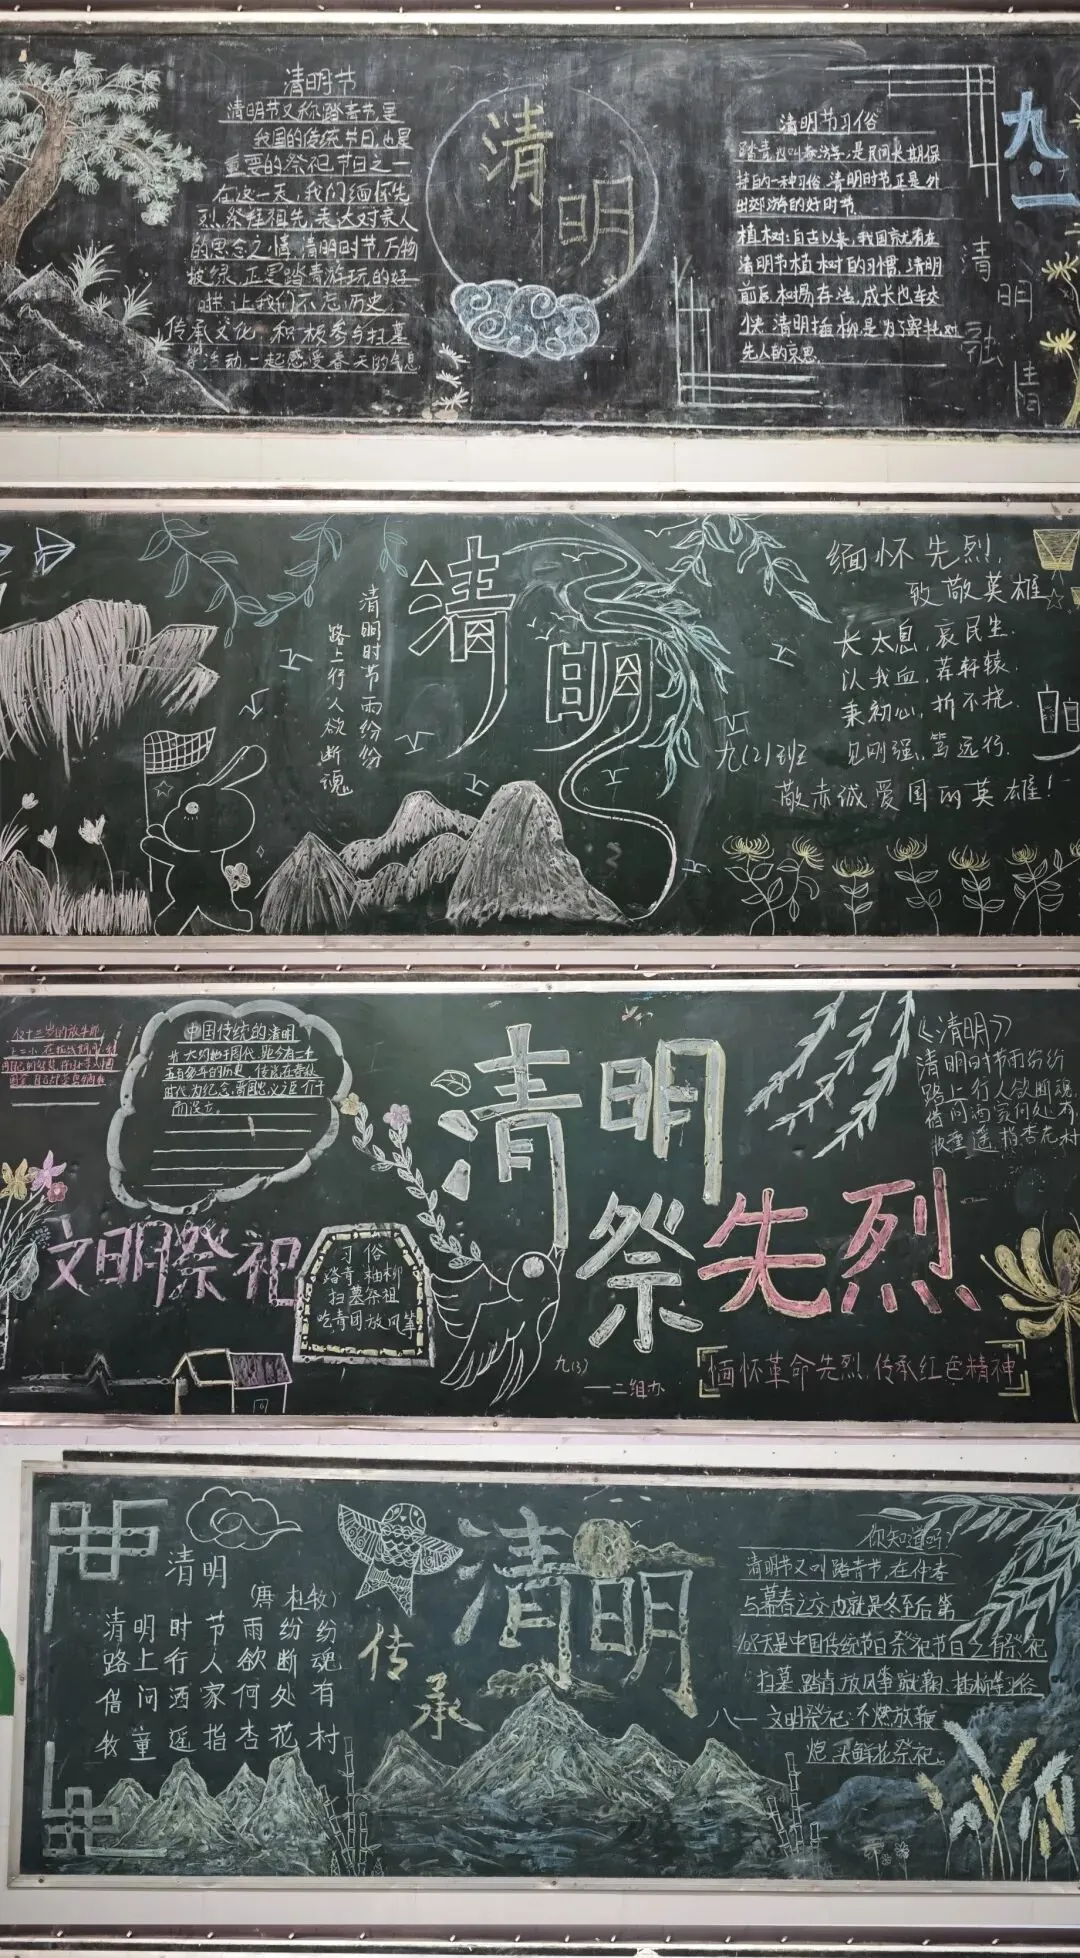 清明节
清明节又称踏青节,是
我国的传统节日,也是
重要的祭祀节日之一
在这一天,我们缅怀先
烈,祭拜祖先,表达对亲人
的思念之情,清明时节,万物
披绿,正是踏青游玩的好
时
让我们不忘历史
传承文化,积极参与扫墓
等活动,一起感受春天的气息
清
明
清明节习俗
踏青:
是民间长期保
持的一种习俗,清明时节,正是外
出郊游的好时节
植树:自古以来,我国就有在
清明节植树的习惯,清明
前后
成长也
快,清明插柳是为了寄托对
先人的哀思
九·一
清明融情
清明
清明时节雨纷纷
路上行人欲断魂
九(2)班
缅怀先烈,
致敬英雄
长太息,哀民生.
以我血,荐轩辕.
秉初心,折不挠.
见刚强,笃远行.
敬赤诚爱国的英雄!
中国传统的清明
节大约始于周代,距今有二千
五百多年的历史,传说在春秋
时代为纪念晋国忠义臣介子
而设立.
文明祭祀
习俗
踏青
扫墓祭祖
吃青团放风筝
清明
祭先烈
九(3)
一二组办
缅怀革命先烈,传承红色精神
《清明》
清明时节雨纷纷
路上行人欲断魂
借问酒家何处有
牧童遥指杏花村
清明
(唐 杜牧)
清明时节雨纷纷
路上行人欲断魂
借问酒家何处有
牧童遥指杏花村
传承
清明
你知道吗?
清明节又叫踏青节,在仲春
与暮春之交,也就是冬至后第
108天是中国传统节日祭祀节日之一有祭祀
扫墓,踏青,放风筝
插柳等习俗
八一
文明祭祀:不燃放鞭
炮,买鲜花祭祀.